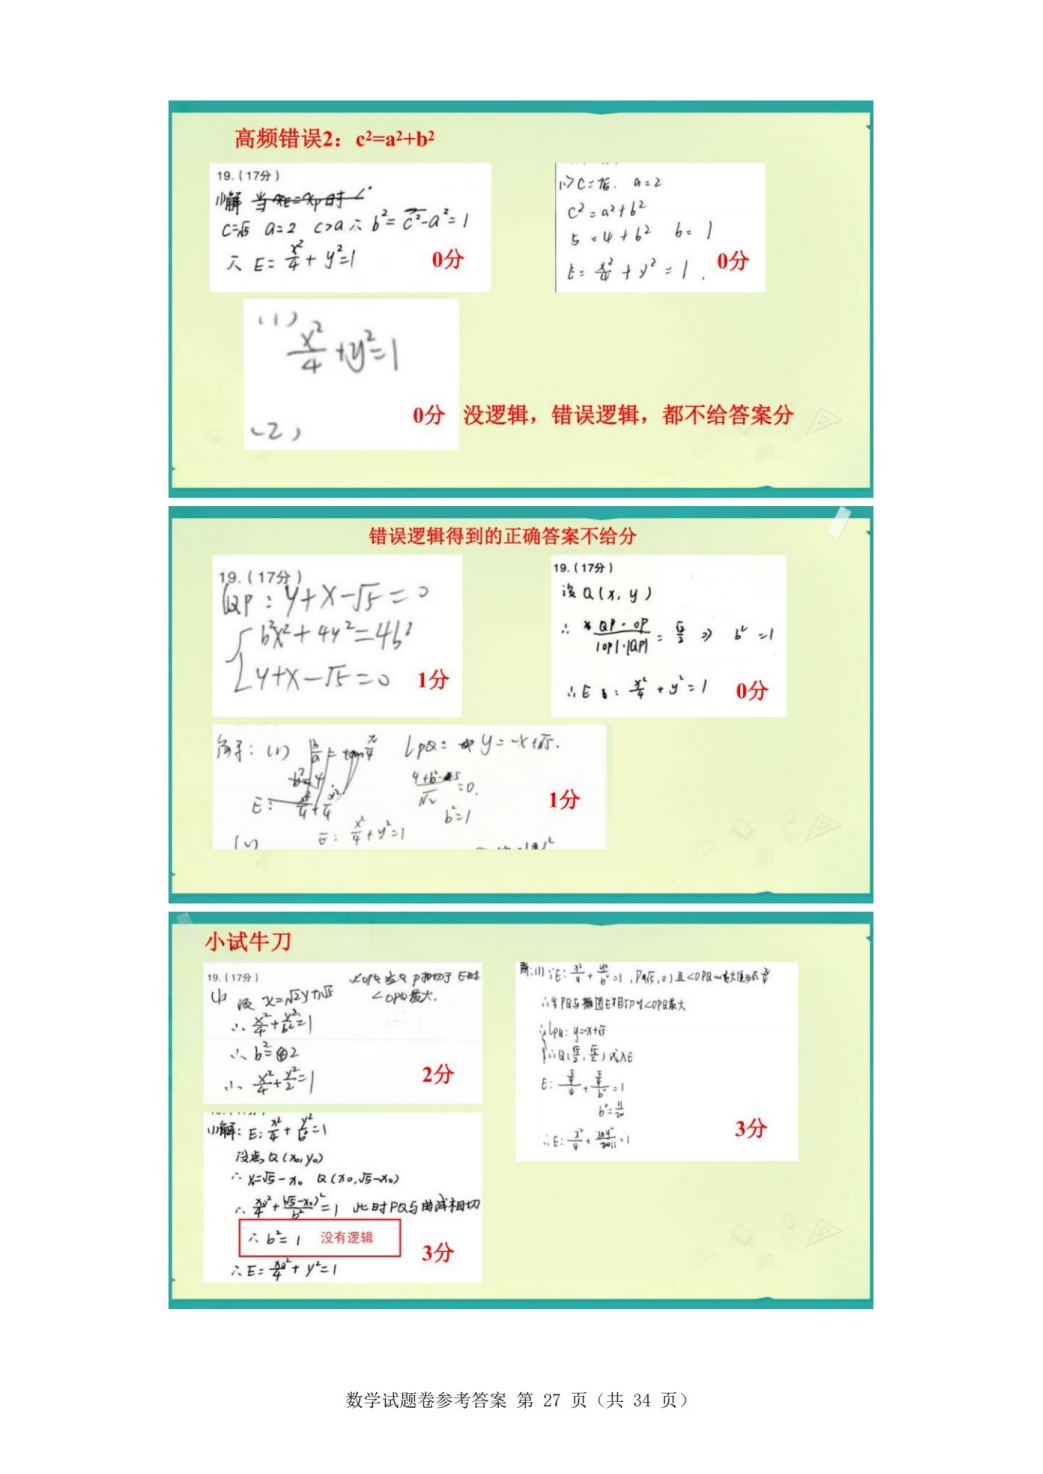 高频错误2：c²=a²+b²
19.(17分)
(1)解 当
c=√5 a=2 c>a ∴ b²=c²-a²=1
∴ E: x²/4 + y²=1
0分
(1) C=√5. a=2
c²=a²+b²
5=4+b² b=1
E: x²/4 + y²=1.
0分
(1)
x²/4 +y²=1
(2)
0分 没逻辑，错误逻辑，都不给答案分
错误逻辑得到的正确答案不给分
19.(17分)
QP: y+x-√5=0
{ b²x²+4y²=4b²
y+x-√5=0
1分
19.(17分)
设Q(x, y)
∴ QP·OP / |OP|·|QP| = √2/2 ⇒ b²=1
∴E: x²/4 + y²=1
0分
解: (1)
l PQ: y=-x+√5.
=0.
b²=1
E: x²/4+y²=1
1分
小试牛刀
19.(17分)
(1) 设 x=√2y+√5
∠OPQ最大.
∴ x²/4+y²/b²=1
∴ b²=2
∴ x²/4+y²/2=1
2分
(1)解: E: x²/4 + y²/b²=1
设点Q(x₀,y₀)
∴ y₀=√5-x₀ Q(x₀,√5-x₀)
∴ x₀²/4+(√5-x₀)²/b²=1 此时PQ与曲线相切
∴ b²=1 没有逻辑
∴E: x²/4+y²=1
3分
∴当PQ与椭圆E相切时∠OPQ最大
∴l PQ: y=-x+√5
3分
数学试题卷参考答案 第 27 页（共 34 页）